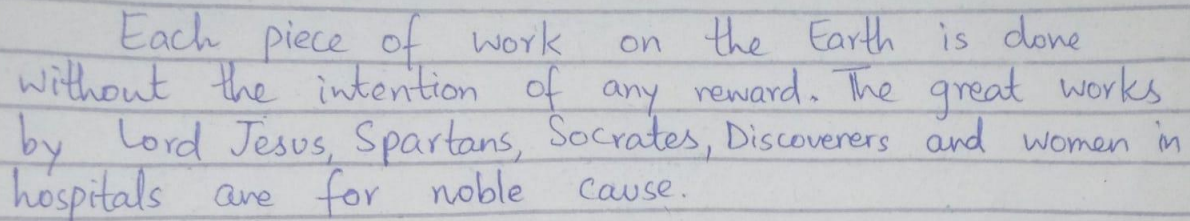 Each piece of work on the Earth is done
without the intention of any reward. The great works
by Lord Jesus, Spartans, Socrates, Discoverers and women in
hospitals are for noble cause.